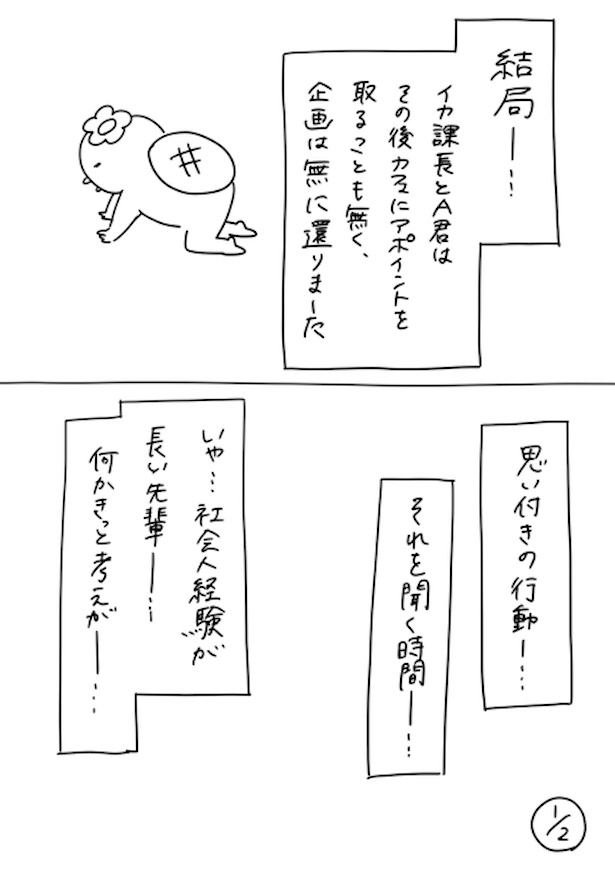 結局ー…
イカ課長とA君は
その後にアポイントを
取ることも無く、
企画は無に還りました
思い付きの行動ー…
それを聞く時間ー…
いや…社会人経験が
長い先輩ー…
何かきっと考えがー…
1/2